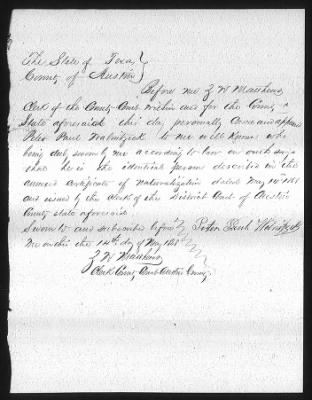 The State of Texas }
County of Austin }
Before me Z W Matthews
Clerk of the County Court within and for the County &
State aforesaid this day personally came and appeared
Peter Paul to me well known who
being duly sworn by me according to law on oath says
that he is the identical person described in the
annexed certificate of naturalization dated May 14th
and issued by the clerk of the District Court of Austin
County State aforesaid
Sworn to and subscribed before } Peter Paul
me on this the 14th day of May
Z W Matthews
Clerk County Court Austin County